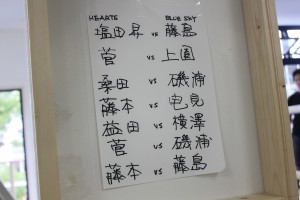 HEARTS BLUE SKY
塩田昇 vs 藤島
菅 vs 上園
桑田 vs 磯浦
藤本 vs 見
益田 vs 横澤
菅 vs 磯浦
藤本 vs 藤島